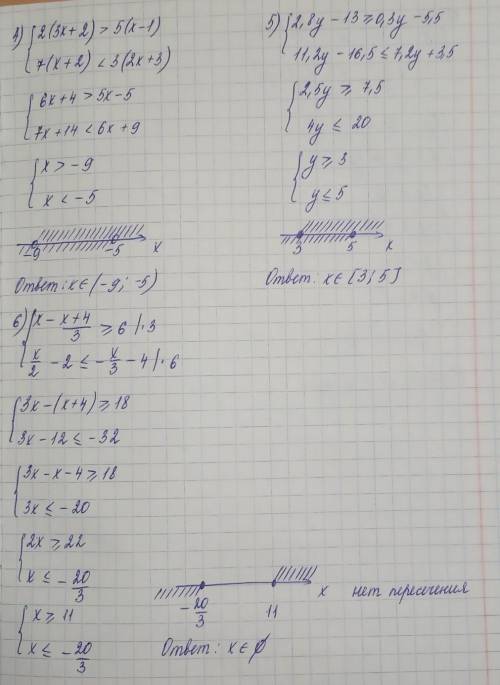 4) { 2(3x+2) > 5(x-1)
7(x+2) < 3(2x+3)
{ 6x+4 > 5x-5
7x+14 < 6x+9
{ x > -9
x < -5
-9 -5 x
Ответ: x∈(-9; -5)
5) { 2,8y - 13 ≥ 0,3y - 5,5
11,2y - 16,5 ≤ 7,2y + 3,5
{ 2,5y ≥ 7,5
4y ≤ 20
{ y ≥ 3
y ≤ 5
3 5 x
Ответ: x∈[3; 5]
6) { x - x+4/3 ≥ 6 |·3
x/2 - 2 ≤ -x/3 - 4 |·6
{ 3x-(x+4) ≥ 18
3x - 12 ≤ -32
{ 3x - x - 4 ≥ 18
3x ≤ -20
{ 2x ≥ 22
x ≤ -20/3
{ x ≥ 11
x ≤ -20/3
-20/3 11 x нет пересечения
Ответ: x∈∅